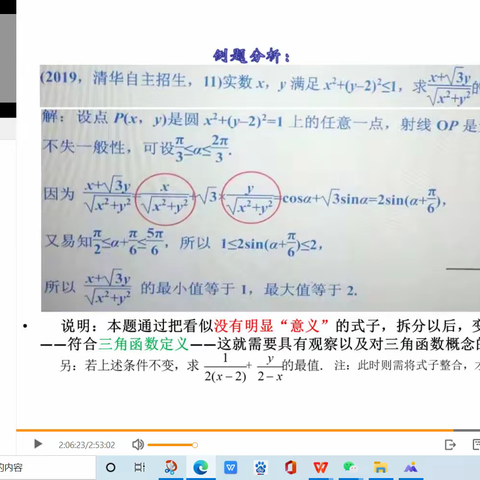 例题分析：
(2019，清华自主招生，11)实数 x，y 满足 x²+(y–2)²≤1，求 (x+√3y)/√(x²+y²) 的
解：设点 P(x，y)是圆 x²+(y–2)²=1 上的任意一点，射线 OP 是
不失一般性，可设 π/3≤α≤2π/3.
因为 (x+√3y)/√(x²+y²) = x/√(x²+y²) +√3× y/√(x²+y²) =cosα+√3sinα=2sin(α+π/6)，
又易知 π/2≤α+π/6≤5π/6，所以 1≤2sin(α+π/6)≤2，
所以 (x+√3y)/√(x²+y²) 的最小值等于 1，最大值等于 2.
• 说明：本题通过把看似没有明显“意义”的式子，拆分以后，变
——符合三角函数定义——这就需要具有观察以及对三角函数概念的
另：若上述条件不变，求 1/2(x–2) + y/2–x 的最值. 注：此时则需将式子整合，
2:06:23/2:53:02
的内容